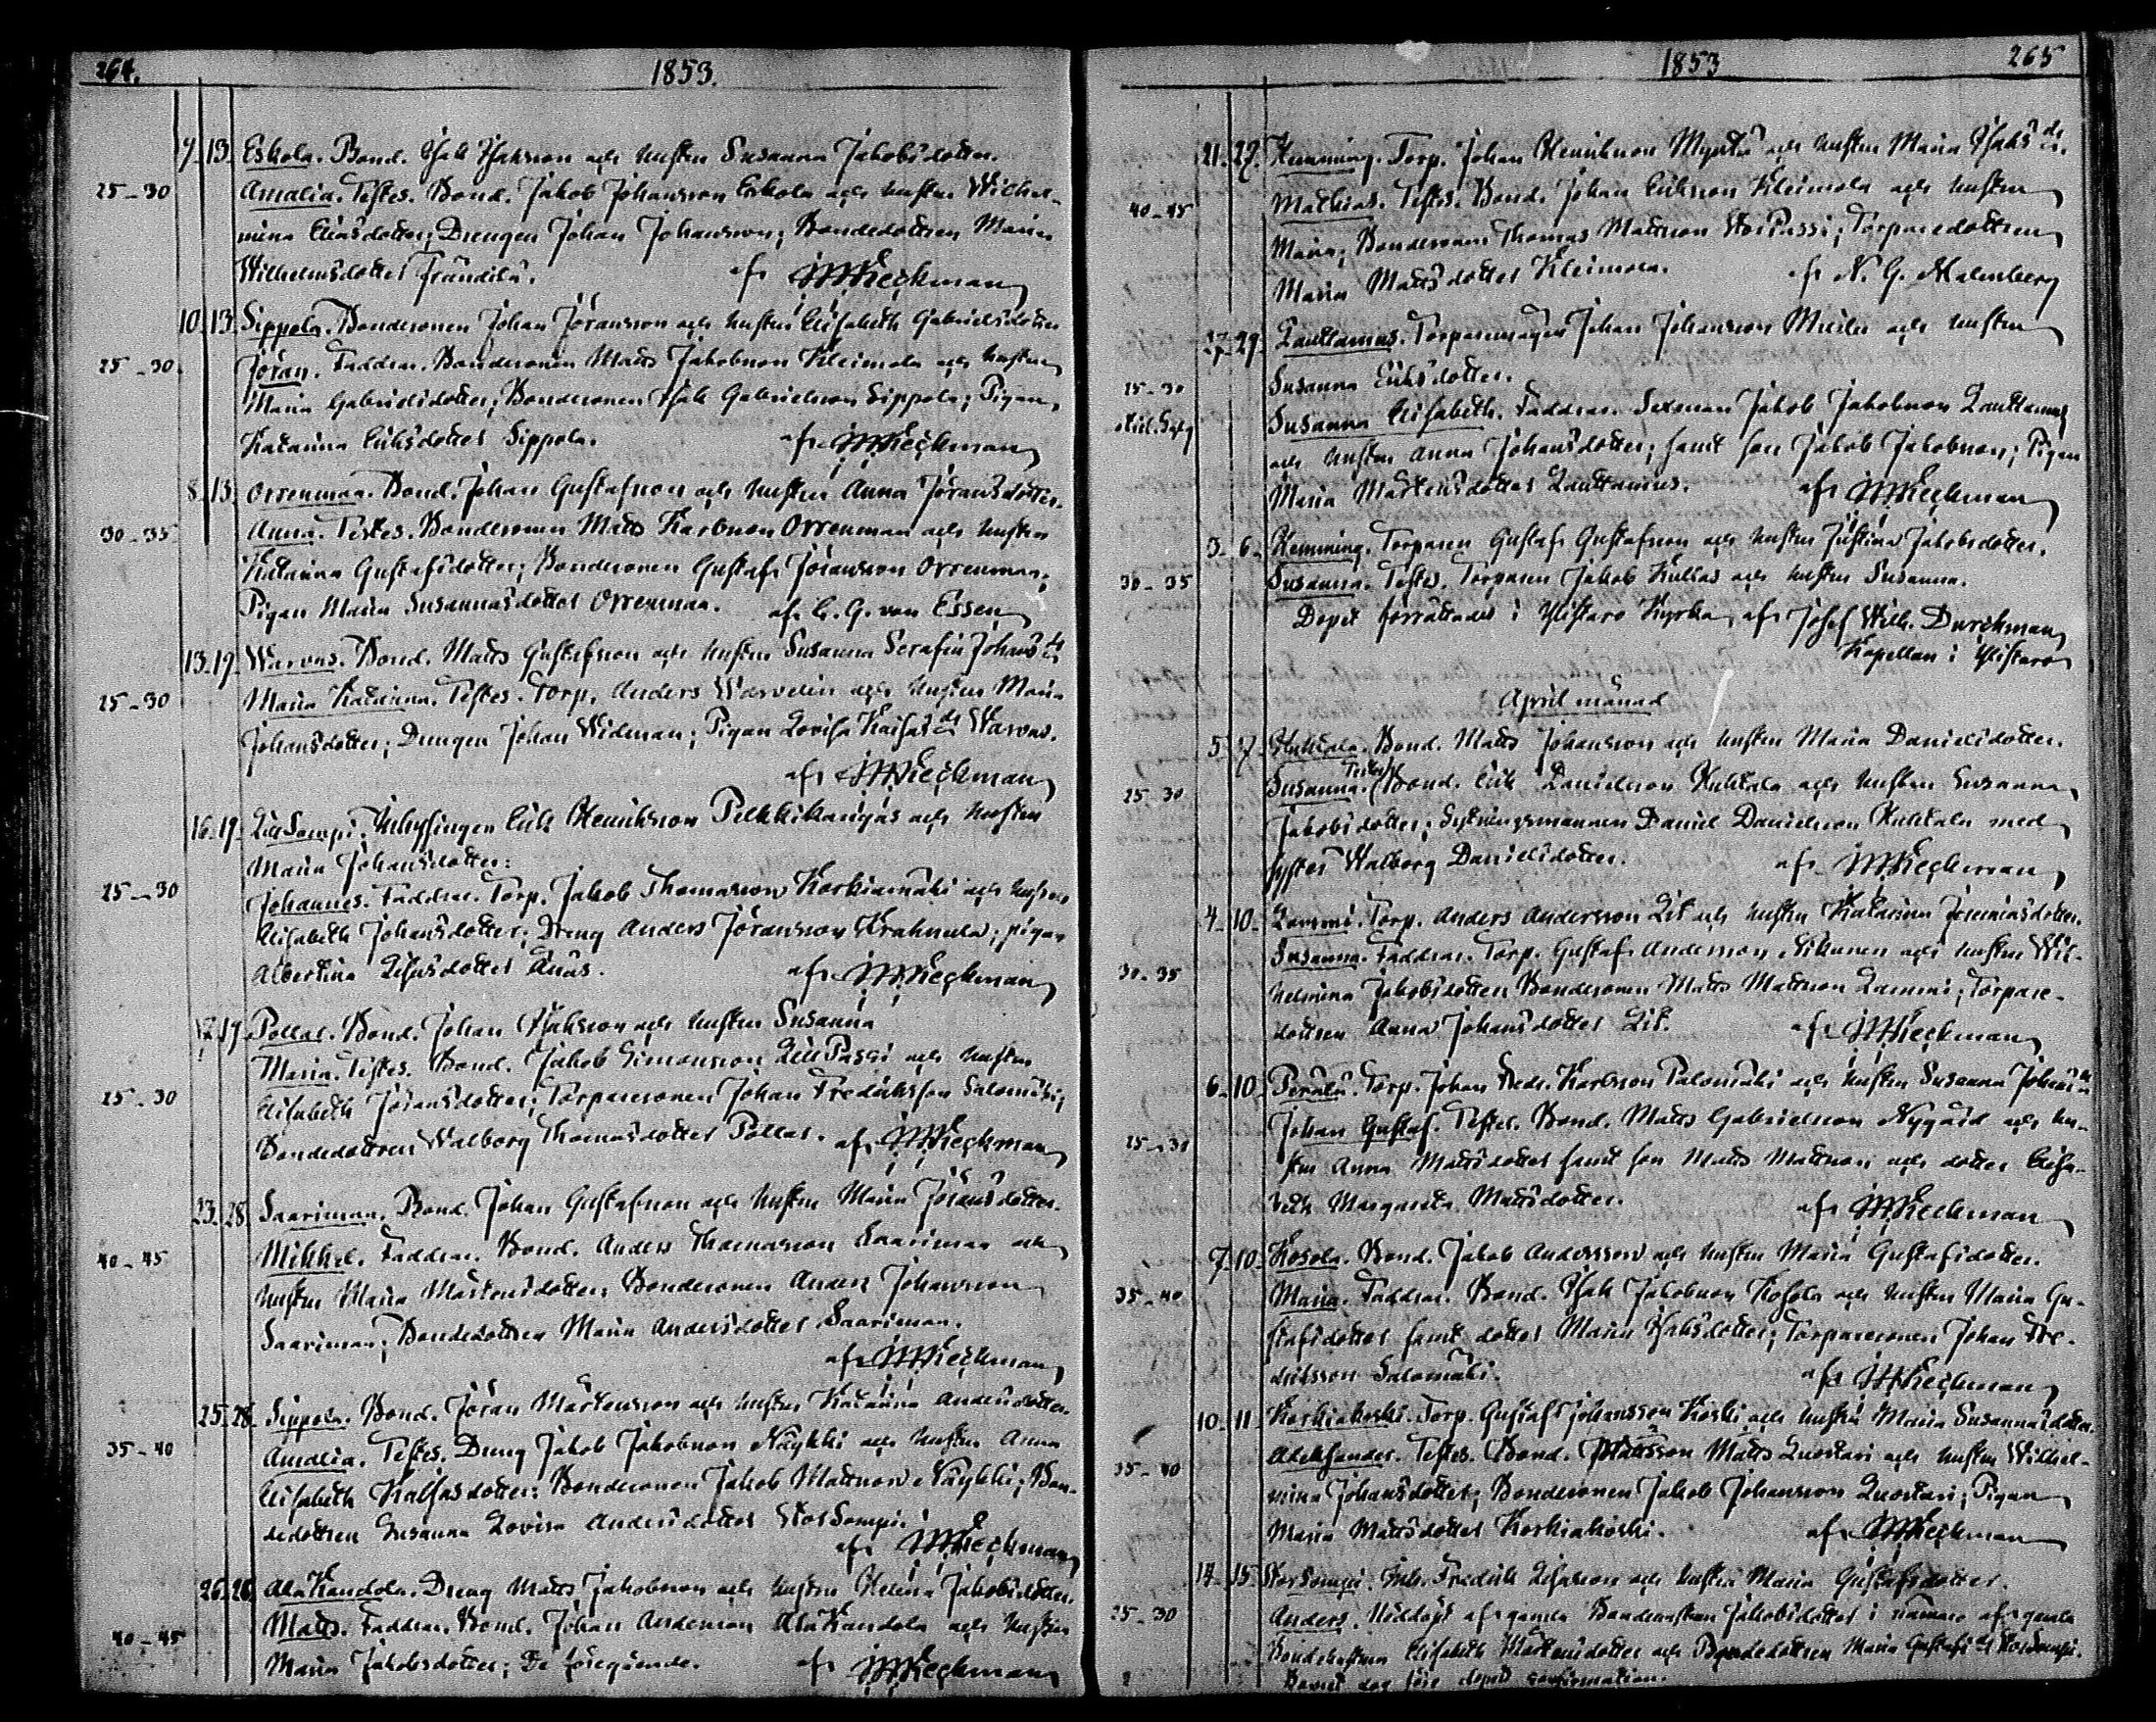 264.
1853.
7. 13. Eskola. Bond. Isak Isaksson och hustru Susanna Jakobsdotter.
25-30 Amalia. Testes. Bond. Jakob Johansson Eskola och hustru Wilhel-
mina Eliasdotter; Drengen Johan Johansson; Bondedottren Maria
Wilhelmsdotter Frändilä. af
10. 13. Sippola. Bondesonen Johan Jöransson och hustru Elisabeth Gabrielsdotter
25-30. Jöran. Faddrar. Bondesonen Matts Jakobsson Kleimola och hustru
Maria Gabrielsdotter; Bondesonen Isak Gabrielsson Sippola; Pigan
Katarina Eriksdotter Sippola. af
8. 13. Orrenmaa. Bond. Johan Gustafsson och hustru Anna Jöransdotter.
30-35 Anna. Testes. Bondesonen Matts Karlsson Orrenmaa och hustru
Katarina Gustafsdotter; Bondesonen Gustaf Jöransson Orrenmaa;
Pigan Maria Susannasdotter Orrenmaa. af C. G. von Essen
13. 19. Warvas. Bond. Matts Gustafsson och hustru Susanna Serafia Johans dr
25-30 Maria Katarina. Testes. Torp. Anders Warvelin och hustru Maria
Johansdotter; Drengen Johan Widman; Pigan Lovisa Kaisas dr Warvas.
af
16. 19. LillSompi. Inhysingen Erik Henriksson Pelkkikangas och hustru
Maria Johansdotter:
25-30 Johannes. Faddrar. Torp. Jakob Thomasson Korkiamäki och hustru
Elisabeth Johansdotter; Dreng Anders Jöransson Krahnula; pigan
Albertina
af
17. 19. Pollar. Bond. Johan Isaksson och hustru Susanna
Maria. Testes. Bond. Jakob Simonsson LillPassi och hustru
25-30 Elisabeth Jöransdotter; Torparesonen Johan Fredriksson Salomäki;
Bondedottren Walborg Thomasdotter Pollar. af
23. 28. Saarimaa. Bond. Johan Gustafsson och hustru Maria Jöransdotter.
40-45 Mikkel. Faddrar. Bond. Anders Thomasson Saarimaa och
hustru Maria Mårtensdotter; Bondesonen Anders Johansson
Saarimaa; Bondedottren Maria Andersdotter Saarimaa.
af
25. 28. Sippola. Bond. Jöran Mårtensson och hustru Katarina Andersdotter.
35-40 Amalia. Testes. Dreng Jakob Jakobsson Näykki och hustru Anna
Elisabeth Kaisasdotter; Bondesonen Jakob Mattsson Näykki; Bon-
dedottren Susanna Lovisa Andersdotter StorSompi.
af
26. 28. AlaKandola. Dreng Matts Jakobsson och hustru Helena Jakobsdotter.
40-45 Matts. Faddrar. Bond. Johan Andersson AlaKandola och hustru
Maria Jakobsdotter; De föregående. af
1853
265
21. 27. Hemming. Torp. Johan Henriksson Mynta och hustru Maria Isaks dr.
40-45 Mathias. Testes. Bond. Johan Eriksson Kleimola och hustru
Maria; Bondesonen Thomas Mattsson StorPassi; Torparedottren
Maria Mattsdotter Kleimola. af N. G. Malmberg
27. 29. Lauttamus. Torparemågen Johan Johansson och hustru
25-30 Susanna Eriksdotter.
Susanna Elisabeth. Faddrar. Sexman Jakob Jakobsson Lauttamus
och hustru Anna Johansdotter; samt son Jakob Jakobsson; Pigan
Maria Mårtensdotter Lauttamus. af
3. 6. Hemming. Torparen Gustaf Gustafsson och hustru Justina Jakobsdotter.
30-35 Susanna. Testes. Torparen Jakob Kullas och hustru Susanna.
Dopet förrättades i Ylistaro Kyrka af Josef Wilh. Durchman
Kapellan i Ylistaro
April månad
5. 7. Huhtala. Bond. Matts Johansson och hustru Maria Danielsdotter.
25-30 Susanna. Testes Bond. Erik Danielsson Huhtala och hustru Susanna
Jakobsdotter; Sytningsmannen Daniel Danielsson Huhtala med
syster Walborg Danielsdotter. af
4. 10. Lammi. Torp. Anders Andersson Lit och hustru Katarina Jeremiasdotter.
30-35 Susanna. Faddrar. Torp. Gustaf Andersson Sikanen och hustru Wil-
helmina Jakobsdotter; Bondesonen Matts Mattsson Lammi; Torpare-
dottren Anna Johansdotter Lit. af
6. 10. Perälä. Torp. Johan Fredr. Karlsson Palomäki och hustru Susanna Johans dr
25-30 Johan Gustaf. Testes. Bond. Matts Gabrielsson Nygård och hu-
stru Anna Mattsdotter samt son Matts Mattsson och dotter Elisa-
beth Margareta Mattsdotter. af
7. 10. Kosola. Bond. Jakob Andersson och hustru Maria Gustafsdotter.
35-40 Maria. Faddrar. Bond. Isak Jakobsson Kosola och hustru Maria Gu-
stafsdotter samt dotter Maria Isaksdotter; Torparesonen Johan Fre-
driksson Salomäki. af
10. 11. Korkiakoski. Torp. Gustaf Johansson Koski och hustru Maria Susannasdotter.
35-40 Aleksander. Testes. Bond. Matts Luostari och hustru Wilhel-
mina Johansdotter; Bondesonen Jakob Johansson Luostari; Pigan
Maria Mattsdotter Korkiakoski. af
14. 15. StorSompi. Inh. Fredrik och hustru Maria Gustafsdotter.
25-30 Anders. Nöddöpt af gamla Bondehustrun Jakobsdotter i närvaro af gamla
Bondehustrun Elisabeth Mårtensdotter och Bondedottren Maria Gustafs dr StorSompi.
confirmation.